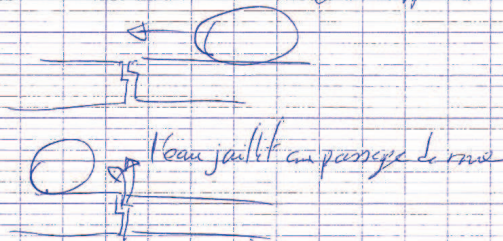 l'eau jaillit au passage de roue